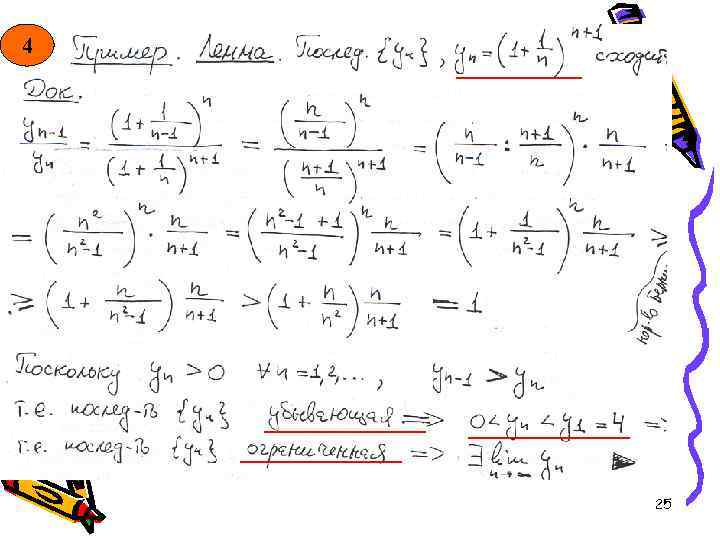 4
Пример. Лемма. Послед. {yₙ}, yₙ = (1 + 1/n)^(n+1) сходит.
Док.
yₙ₋₁/yₙ = (1 + 1/(n-1))^n / (1 + 1/n)^(n+1) = (n/(n-1))^n / ((n+1)/n)^(n+1) = (n/(n-1) : (n+1)/n)^n · n/(n+1)
= (n²/(n²-1))^n · n/(n+1) = ((n²-1+1)/(n²-1))^n n/(n+1) = (1 + 1/(n²-1))^n n/(n+1) ≥
нер-во Берн.
≥ (1 + n/(n²-1)) n/(n+1) > (1 + n/n²) n/(n+1) = 1
Поскольку yₙ > 0 ∀n = 1,2,..., yₙ₋₁ > yₙ
т.е. послед-ть {yₙ} убывающая => 0 < yₙ < y₁ = 4 =>
т.е. послед-ть {yₙ} ограниченная => ∃ lim yₙ n→∞
25